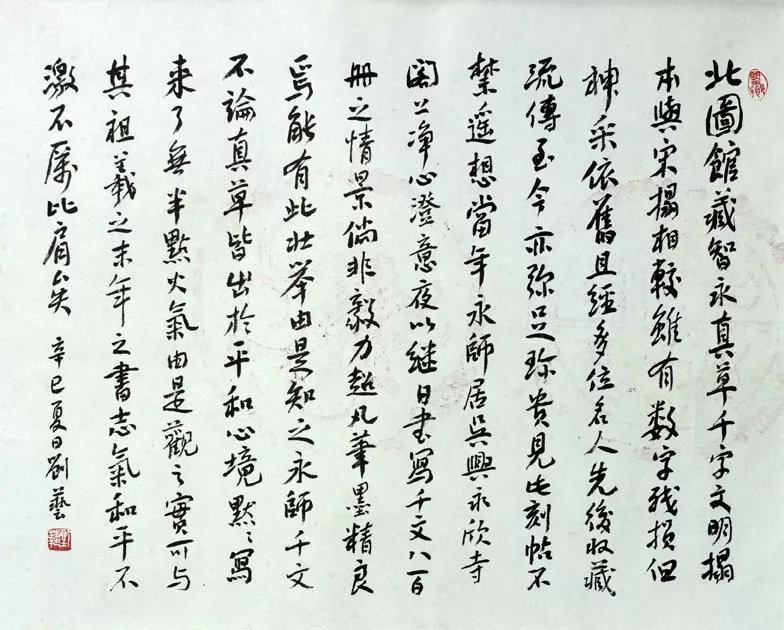 北圖館藏智永真草千字文明搨
本與宋搨相較雖有数字残損但
神采依舊且經多位名人先後收藏
流傳至今亦弥足珍貴見此刻帖不
禁遥想當年永師居吳興永欣寺
閣上淨心澄意夜以継日書寫千文八百
册之情景倘非毅力超凡筆墨精良
焉能有此壮举由是知之永師千文
不論真草皆出於平和心境默〻寫
来了無半點火氣由是觀之實可与
其祖羲之末年之書志氣和平不
激不厲比肩矣 辛巳夏日劉藝